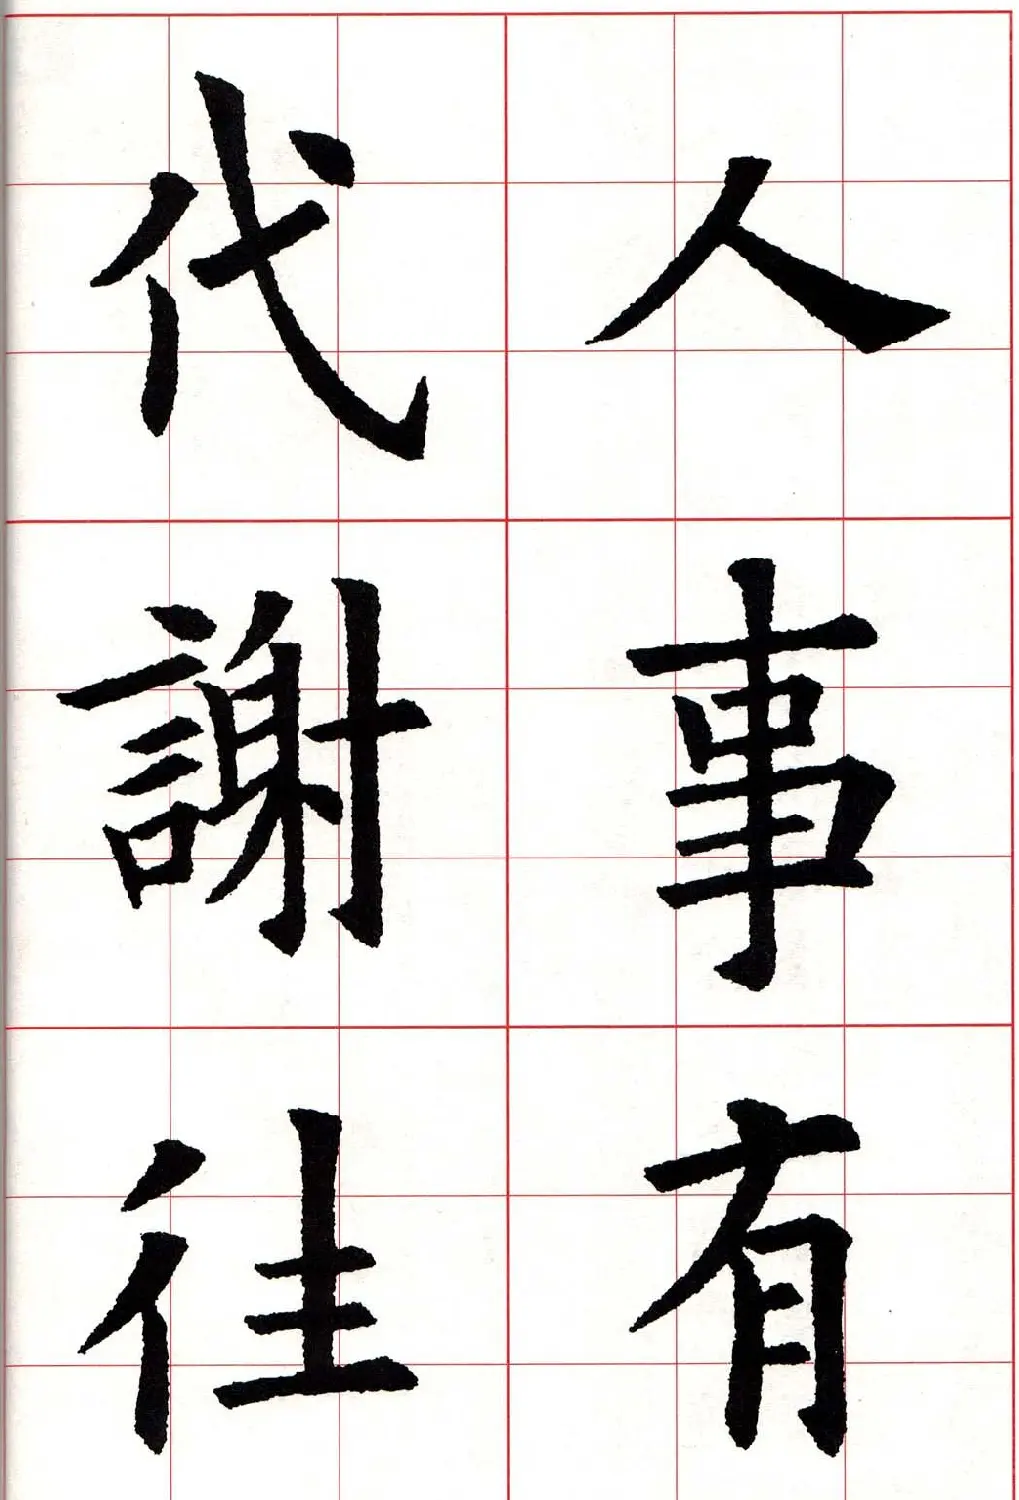 人事有
代謝往